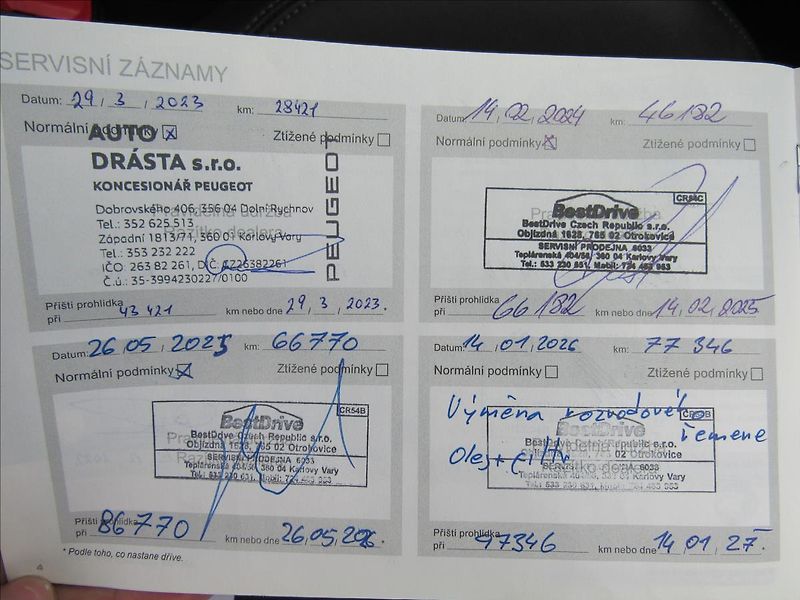 SERVISNÍ ZÁZNAMY
Datum: 29, 3, 2023 km: 28421
Normální podmínky ☒ Ztížené podmínky ☐
AUTO
DRÁSTA s.r.o.
KONCESIONÁŘ PEUGEOT
PEUGEOT
Dobrovského 406, 356 04 Dolní Rychnov
Tel.: 352 625 513
Západní 1813/71, 360 01 Karlovy Vary
Tel.: 353 232 222
IČO: 263 82 261, DIČ: CZ26382261
Č.ú.: 35-3994230227/0100
Příští prohlídka
při 43 421 km nebo dne 29, 3, 2023.
Datum: 14, 02, 2024 km: 46182
Normální podmínky ☒ Ztížené podmínky ☐
CR54C
BestDrive
BestDrive Czech Republic s.r.o.
Objízdná 1628, 765 02 Otrokovice
SERVISNÍ PRODEJNA 6033
Teplárenská 404/56, 360 04 Karlovy Vary
Tel.: 533 230 631, Mobil: 724 453 953
Příští prohlídka
při 66 182 km nebo dne 14, 02, 2025
Datum: 26, 05, 2025 km: 66770
Normální podmínky ☒ Ztížené podmínky ☐
CR54B
BestDrive
BestDrive Czech Republic s.r.o.
Objízdná 1628, 765 02 Otrokovice
SERVISNÍ PRODEJNA 6033
Teplárenská 404/56, 360 04 Karlovy Vary
Příští prohlídka
při 86770 km nebo dne 26, 05, 2026.
* Podle toho, co nastane dříve.
4
Datum: 14, 01, 2026 km: 77 346
Normální podmínky ☐ Ztížené podmínky ☐
Výměna rozvodové
řemene
Olej + filtr
BestDrive
BestDrive Czech Republic s.r.o.
Objízdná 1628, 765 02 Otrokovice
SERVISNÍ PRODEJNA 6033
Teplárenská 404/56, 360 04 Karlovy Vary
Příští prohlídka
při 97346 km nebo dne 14, 01, 27.